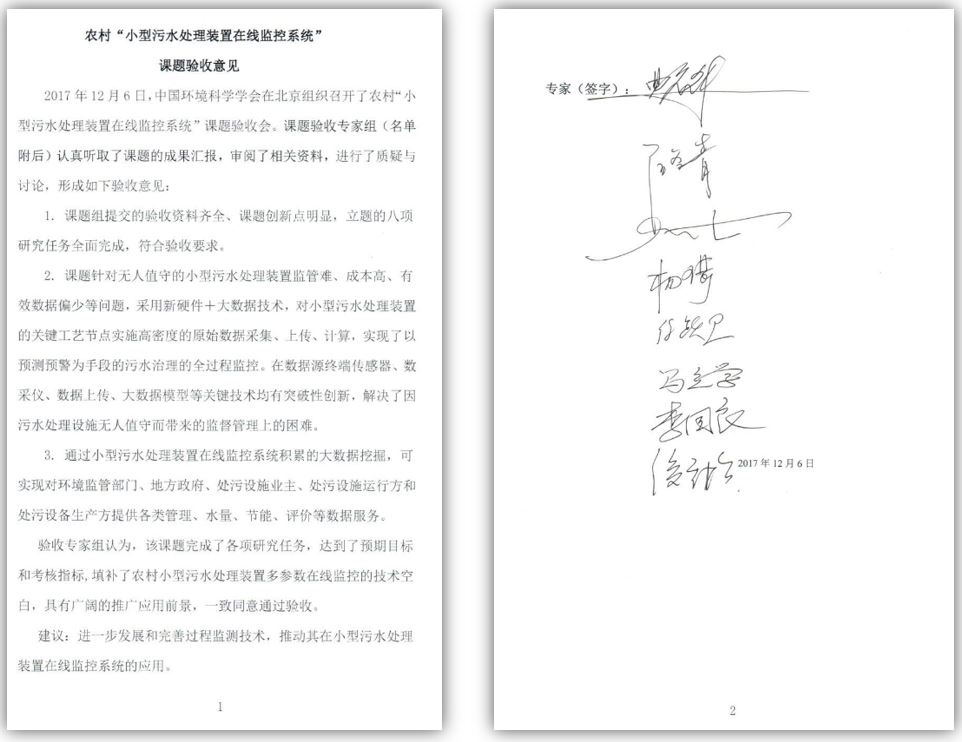 农村“小型污水处理装置在线监控系统”
课题验收意见
2017年12月6日,中国环境科学学会在北京组织召开了农村“小
型污水处理装置在线监控系统”课题验收会。课题验收专家组（名单
附后）认真听取了课题的成果汇报，审阅了相关资料，进行了质疑与
讨论，形成如下验收意见：
1. 课题组提交的验收资料齐全、课题创新点明显，立题的八项
研究任务全面完成，符合验收要求。
2. 课题针对无人值守的小型污水处理装置监管难、成本高、有
效数据偏少等问题，采用新硬件＋大数据技术，对小型污水处理装置
的关键工艺节点实施高密度的原始数据采集、上传、计算，实现了以
预测预警为手段的污水治理的全过程监控。在数据源终端传感器、数
采仪、数据上传、大数据模型等关键技术均有突破性创新，解决了因
污水处理设施无人值守而带来的监督管理上的困难。
3. 通过小型污水处理装置在线监控系统积累的大数据挖掘，可
实现对环境监管部门、地方政府、处污设施业主、处污设施运行方和
处污设备生产方提供各类管理、水量、节能、评价等数据服务。
验收专家组认为，该课题完成了各项研究任务，达到了预期目标
和考核指标,填补了农村小型污水处理装置多参数在线监控的技术空
白，具有广阔的推广应用前景，一致同意通过验收。
建议：进一步发展和完善过程监测技术，推动其在小型污水处理
装置在线监控系统的应用。
1
专家（签字）：
李国良
2017年12月6日
2